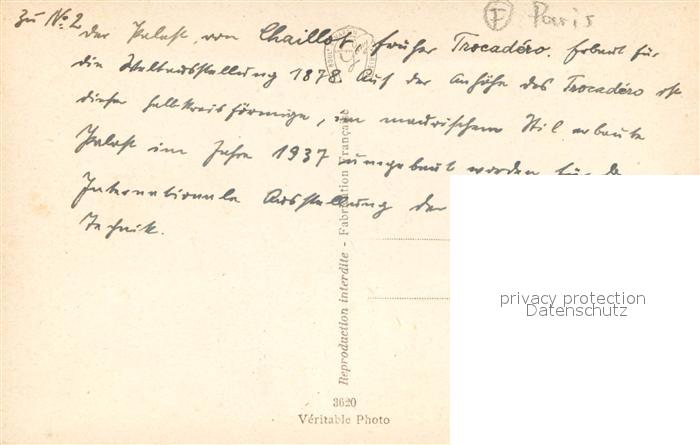 zu No. 2
(F) Paris
Der Palast von Chaillot, früher Trocadéro. Erbaut für
die Weltausstellung 1878. Auf der Anhöhe des Trocadéro ist
dieser halbkreisförmige, im maurischem Stil erbaute
Palast im Jahre 1937 umgebaut worden für
Internationale Ausstellung der
Technik.
Reproduction interdite - Fabrication Française
3620
Véritable Photo
privacy protection
Datenschutz